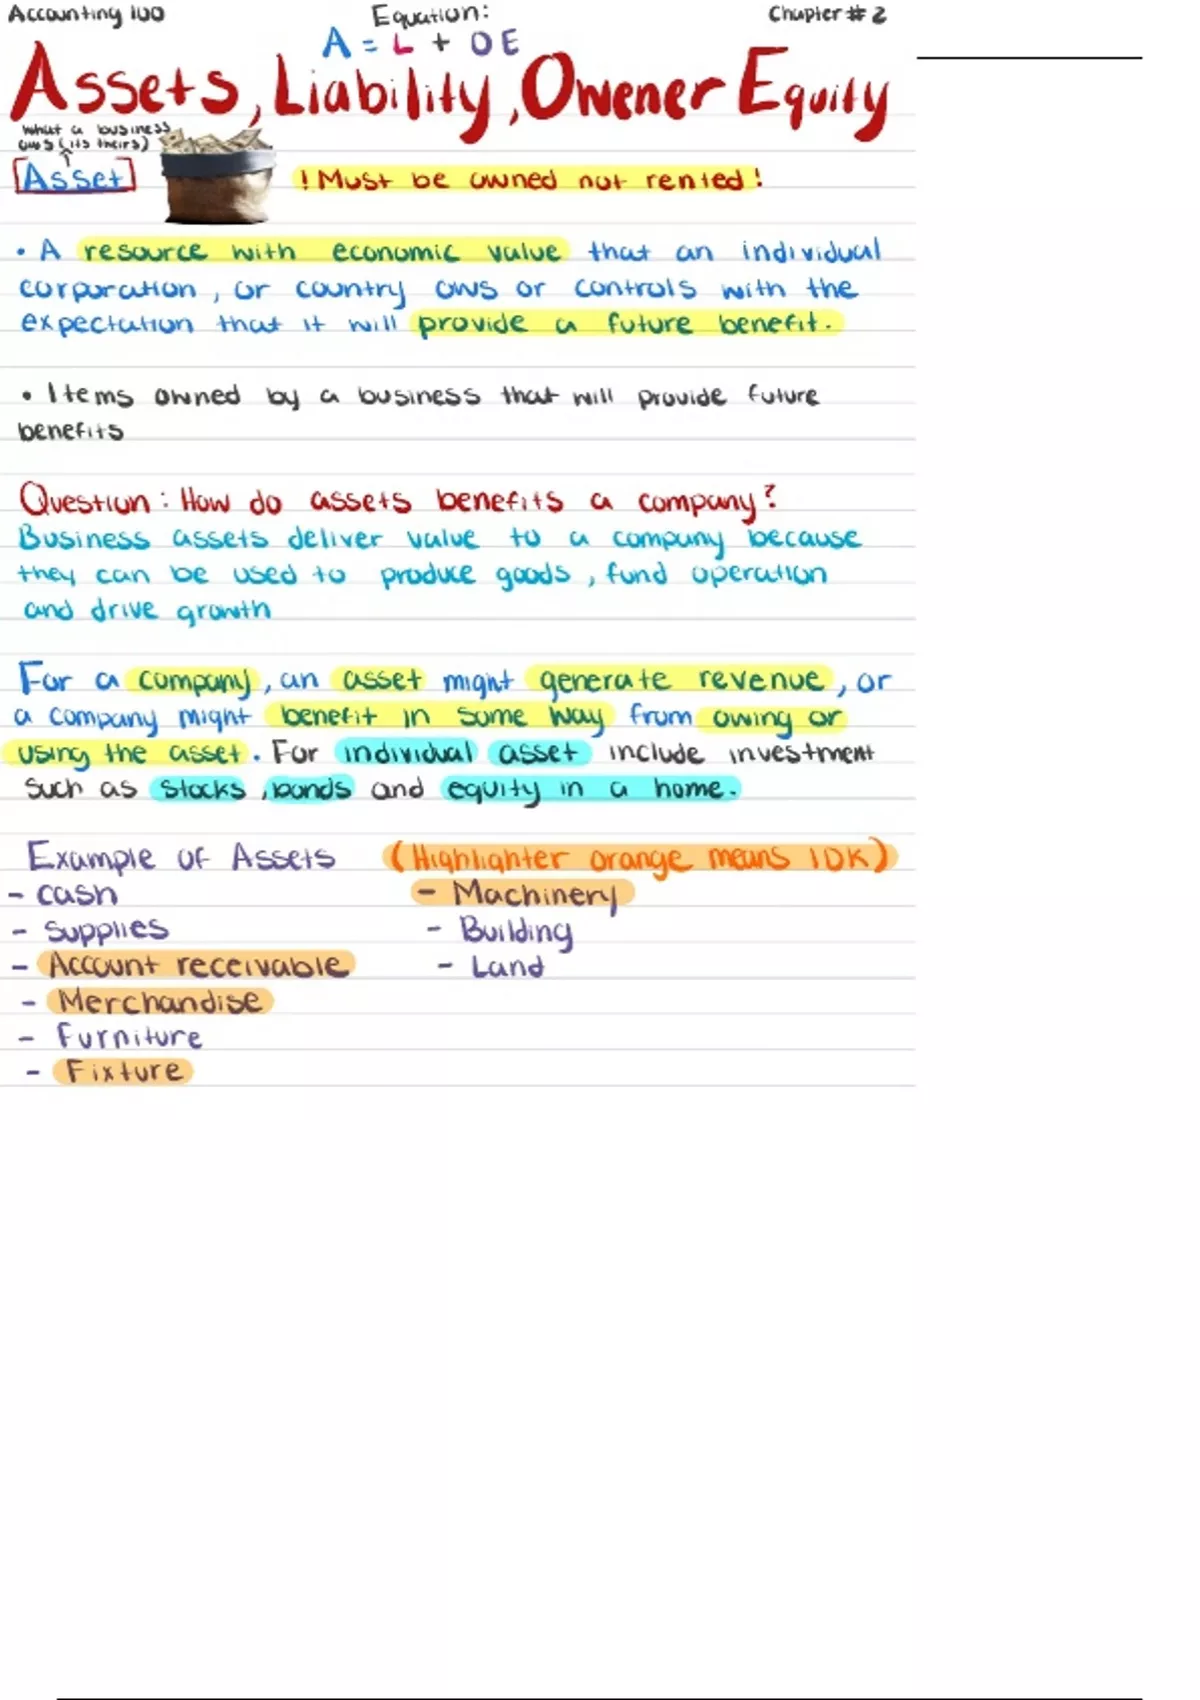 Accounting 100
Equation:
Chapter # 2
A = L + OE
Assets, Liability, Owener Equity
What a business
ows (its theirs)
Asset
! Must be owned not rented!
• A resource with economic value that an individual
corporation, or country ows or controls with the
expectation that it will provide a future benefit.
• Items owned by a business that will provide future
benefits
Question: How do assets benefits a company?
Business assets deliver value to a company because
they can be used to produce goods, fund operation
and drive growth
For a company, an asset might generate revenue, or
a company might benefit in some way from owing or
using the asset. For individual asset include investment
such as stocks, bonds and equity in a home.
Example of Assets
(Highlighter orange means IDK)
- cash
- Machinery
- supplies
- Building
- Account receivable
- Land
- Merchandise
- Furniture
- Fixture